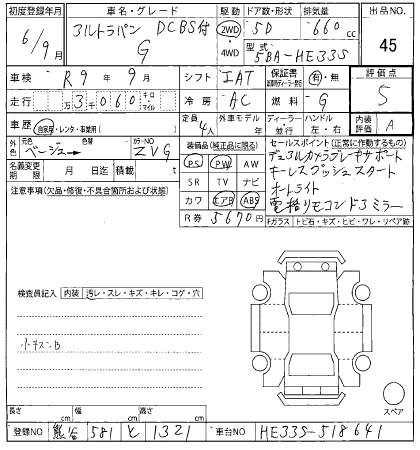 初度登録年月 車名・グレード 駆動 ドア数・形状 排気量 出品NO.
6/9月 アルトラパン DCBS付 2WD 5D 660cc 45
G ・4WD 型式 5BA-HE33S
車検 R9年9月 シフト IAT 保証書 有・無 評価点
走行 万3千060 キロ・マイル 冷房 AC 燃料 G 5
車歴 自家用・レンタ・事業用( ) 定員 4人 外車モデル 年 ディーラー・並行 ハンドル 左・右 内装評価 A
外色 元色 ベージュー 色替 カラーNO ZVG
装備品(純正品に限る) セールスポイント(正常に作動するもの)
PS PW AW デュアルカメラブレーキサポート
名義変更期限 月 日迄 積載 t SR TV ナビ キーレスプッシュスタート
注意事項(欠品・修復・不具合箇所および状態) カワ エアB ABS オートライト
R券 5670円 電格リモコンドアミラー
Fガラス トビ石・キズ・ヒビ・ワレ・リペア跡
検査員記入 内装 汚レ・スレ・キズ・キレ・コゲ・穴
小キズB
長さ cm 幅 cm 高さ cm スペア
登録NO 熊谷 581 と 1321 車台NO HE33S-518641